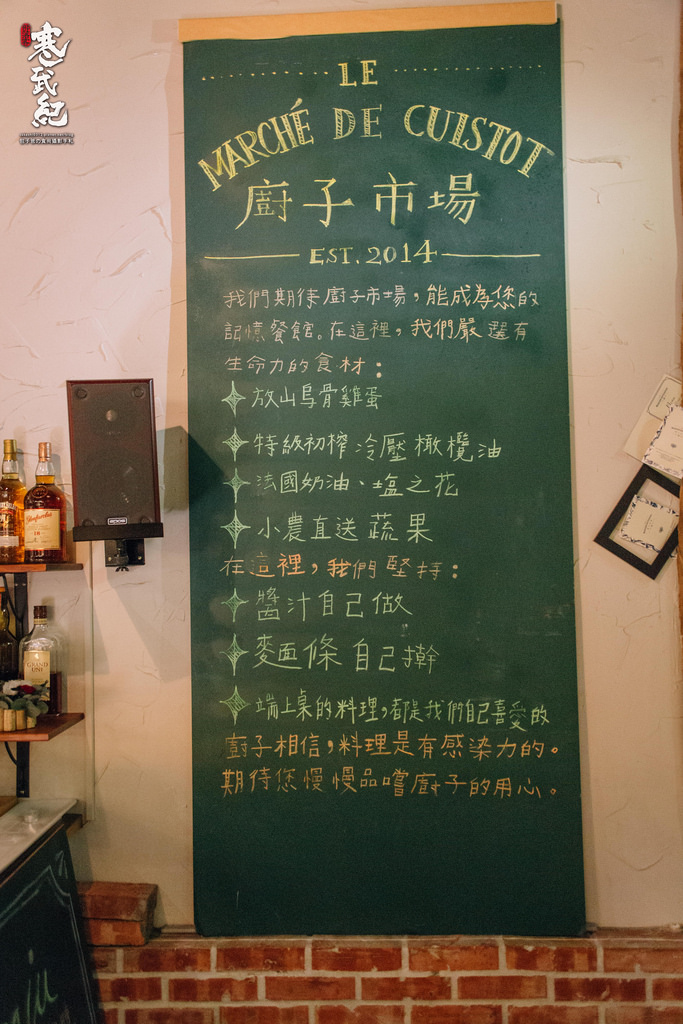 寒武紀
LE
MARCHÉ DE CUISTOT
廚子市場
EST. 2014
我們期待廚子市場，能成為您的
記憶餐館。在這裡，我們嚴選有
生命力的食材：
放山烏骨雞蛋
特級初榨冷壓橄欖油
法國奶油、塩之花
小農直送蔬果
在這裡，我們堅持：
醬汁自己做
麵條自己擀
端上桌的料理，都是我們自己喜愛的
廚子相信，料理是有感染力的。
期待您慢慢品嚐廚子的用心。